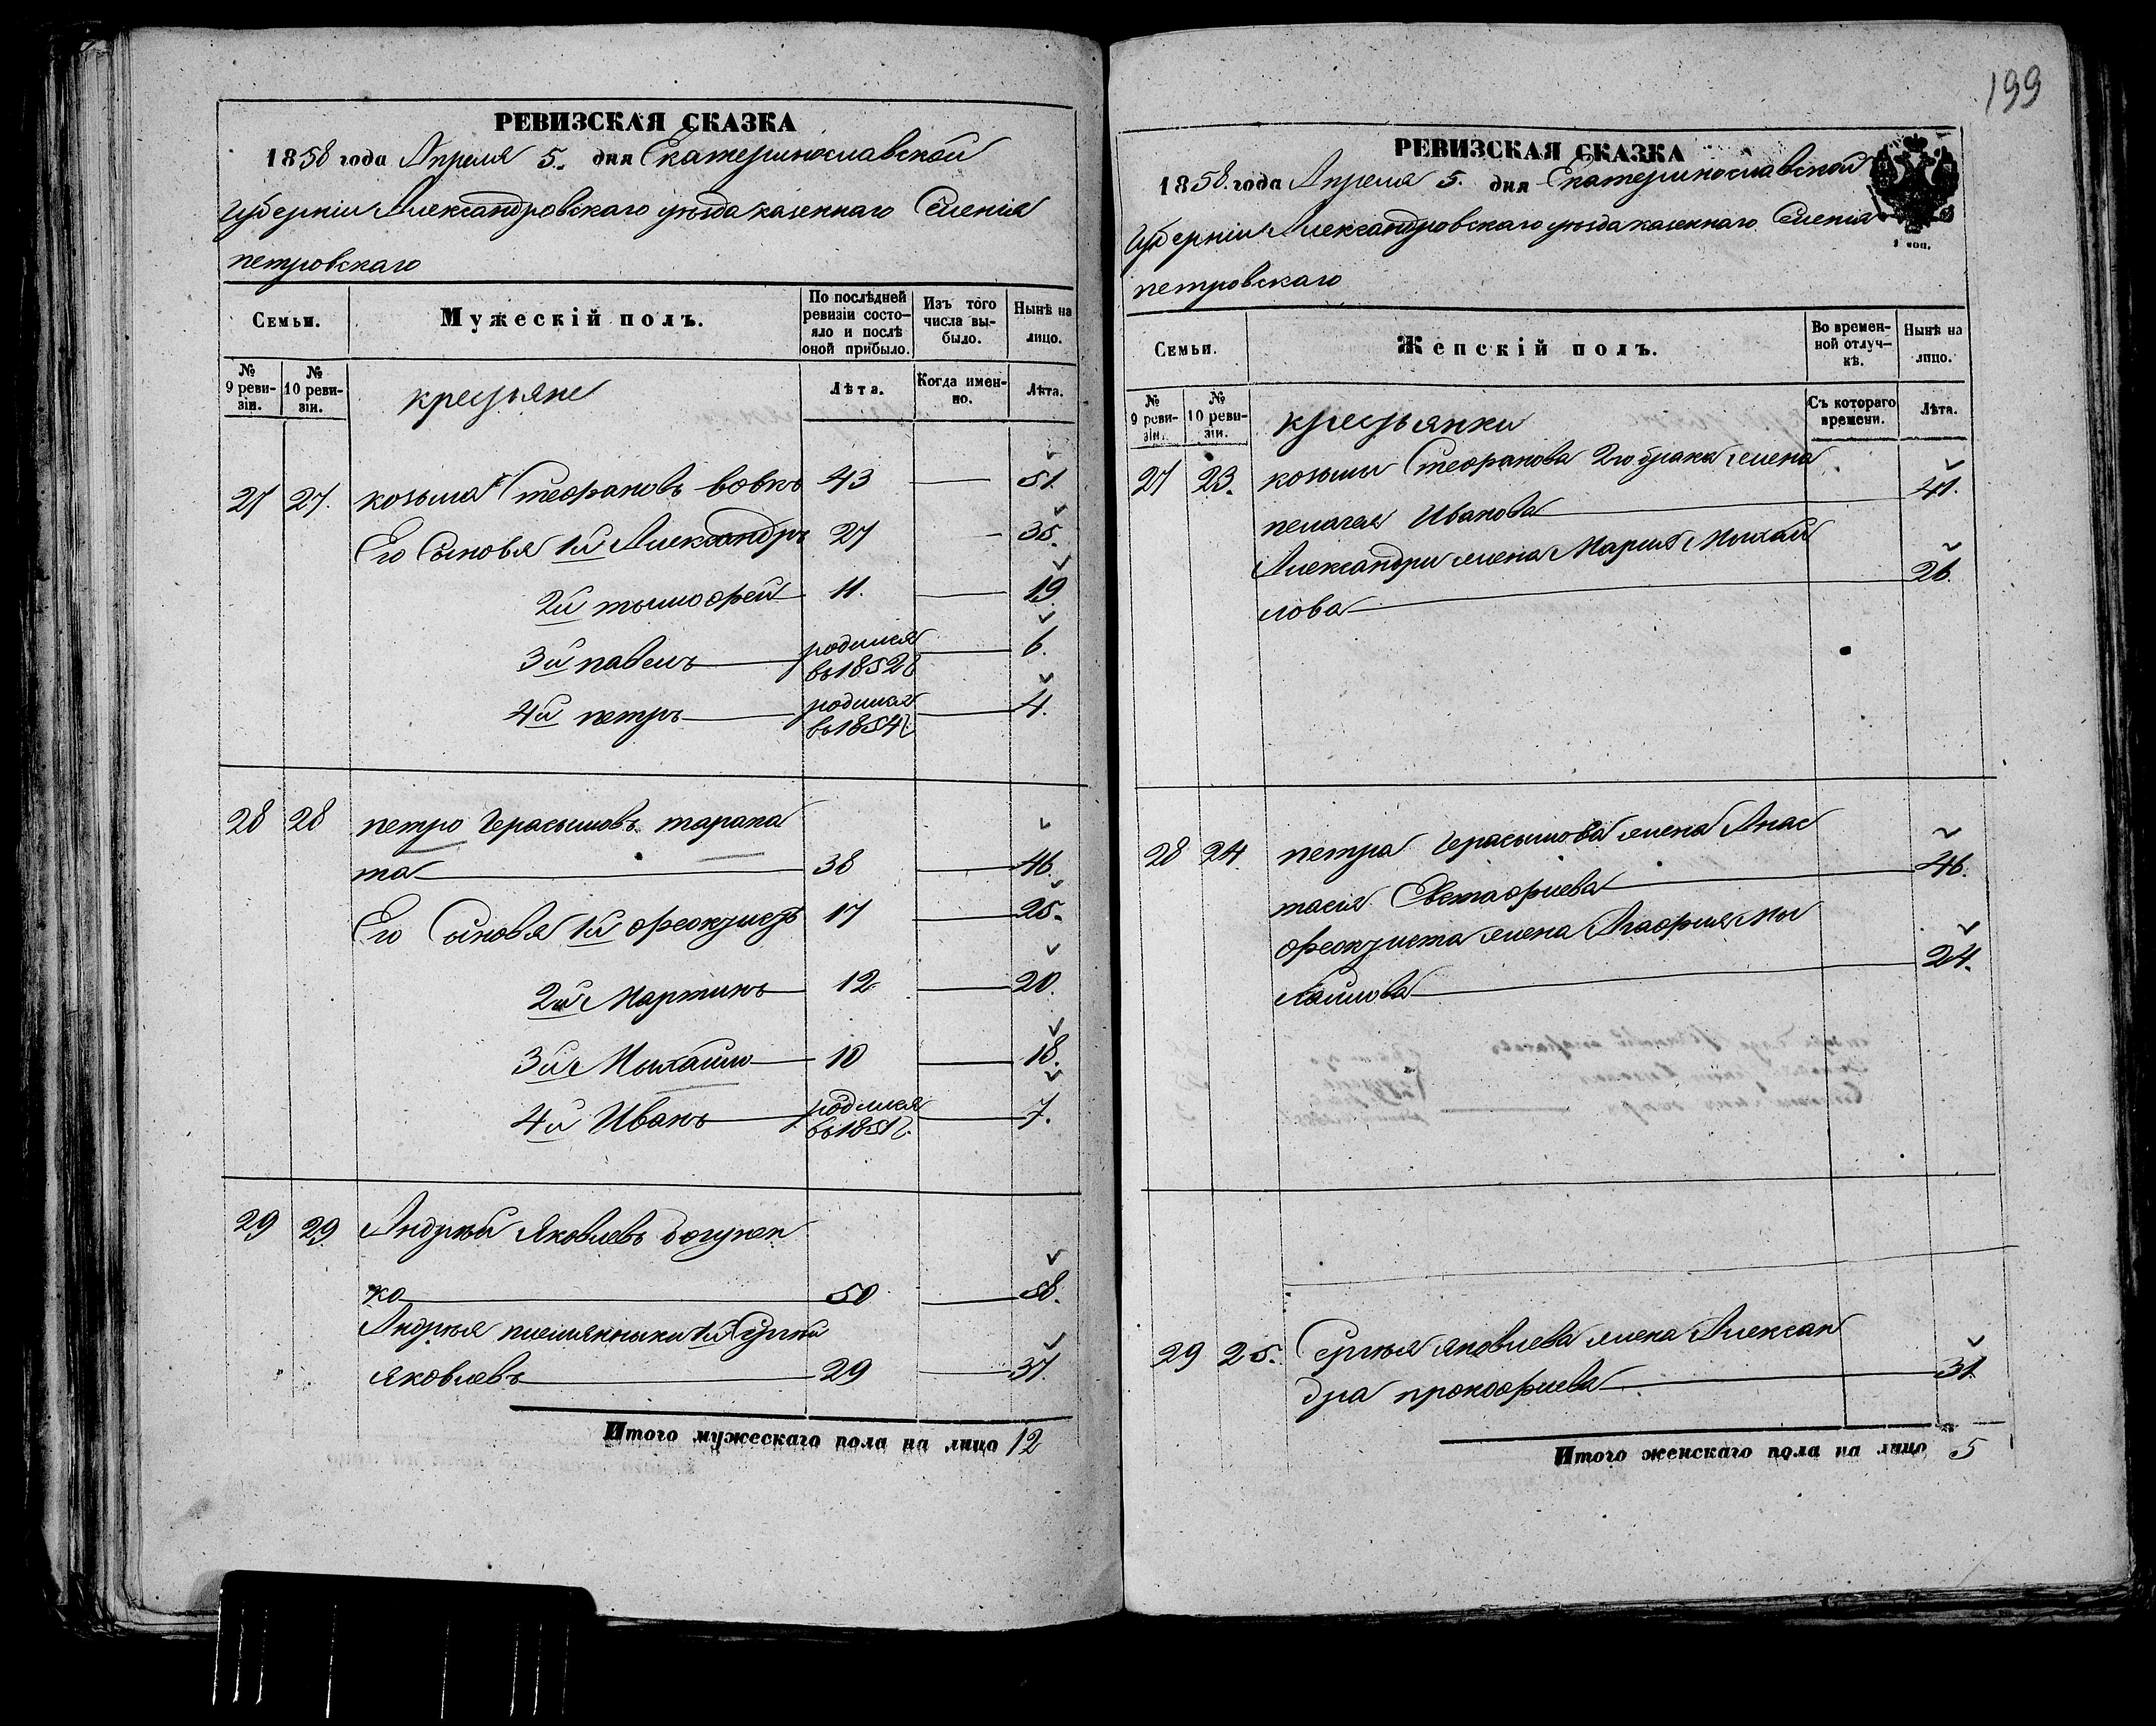 199
РЕВИЗСКАЯ СКАЗКА
1858 года Апреля 5. дня Екатеринославской
губерніи Александровскаго уѣзда казеннаго Селенія
петровскаго
Семьи.
Мужескій полъ.
По послѣдней ревизіи состо-
яло и послѣ оной прибыло.
Изъ того числа вы-
было.
Нынѣ на лицо.
№ 9 реви-
зіи.
№ 10 реви-
зіи.
крестьяне
Лѣта.
Когда имен-
но.
Лѣта.
27 27. козьма Стефановъ вовкъ 43 51.
Его Сыновья 1й Александръ 27 35.
2й тымофей 11. 19
3й павелъ родился въ 1852г 6.
4й петръ родился въ 1854г 4.
28 28 петро Герасымовъ тарапа
та 38 46.
Его Сыновья 1й феоктистъ 17 25.
2й Мартинъ 12 20.
3й Мыхайло 10 18.
4й Иванъ родился въ 1851г. 7.
29 29. Андрѣй Яковлевъ
ко 50 58.
Андрѣя племянныки 1й Сергѣй
яковлевъ 29 37.
Итого мужескаго пола на лицо 12
РЕВИЗСКАЯ СКАЗКА
1858. года Апреля 5. дня Екатеринославской
губерніи Александровскаго уѣзда казеннаго Селенія
петровскаго
Семьи.
Женскій полъ.
Во времен-
ной отлуч-
кѣ.
Нынѣ на лицо.
№ 9 реви-
зіи.
№ 10 реви-
зіи.
крестьянки
Съ котораго времени.
Лѣта.
27 23. козьмы Стефанова 2го брака жена
пелагея Иванова 41.
Александра жена Мария Мыхай
лова 26.
28 24. петра Герасымова жена Анас
тасія Евстафиева 46.
феоктиста жена Агафия Мы
хайлова 24.
29 25. Сергѣя яковлева жена Алексан
дра прокофиева 31
Итого женскаго пола на лицо 5